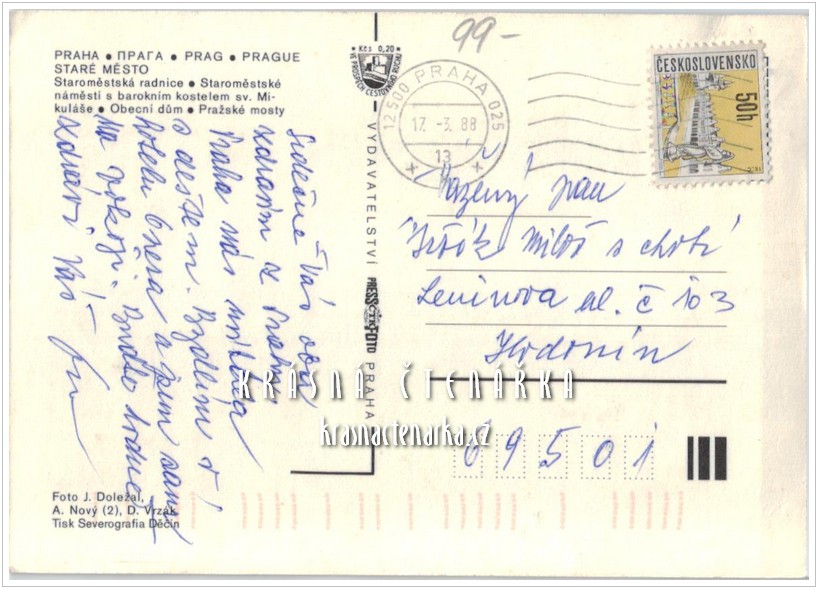 99-
PRAHA • ПРАГА • PRAG • PRAGUE
STARÉ MĚSTO
Staroměstská radnice • Staroměstské
náměstí s barokním kostelem sv. Mi-
kuláše • Obecní dům • Pražské mosty
Kčs 0,20
VE PROSPĚCH CESTOVNÍHO RUCHU
12500 PRAHA 025
17.-3.88
13
ČESKOSLOVENSKO
50h
Srdečně Vás oba
zdravím z Prahy
Praha nás uvítala
s deštěm. Bydlím v
hotelu Opera a jsem sama
na pokoji. Buďte hodně
zdrávi Váš
VYDAVATELSTVÍ PRESSFOTO PRAHA
Vážený pan
Miloš s chotí
Leninova ul. č 103
Hodonín
69501
KRÁSNÁ ČTENÁŘKA
krasnactenarka.cz
Foto J. Doležal,
A. Nový (2), D. Vrzák
Tisk Severografia Děčín